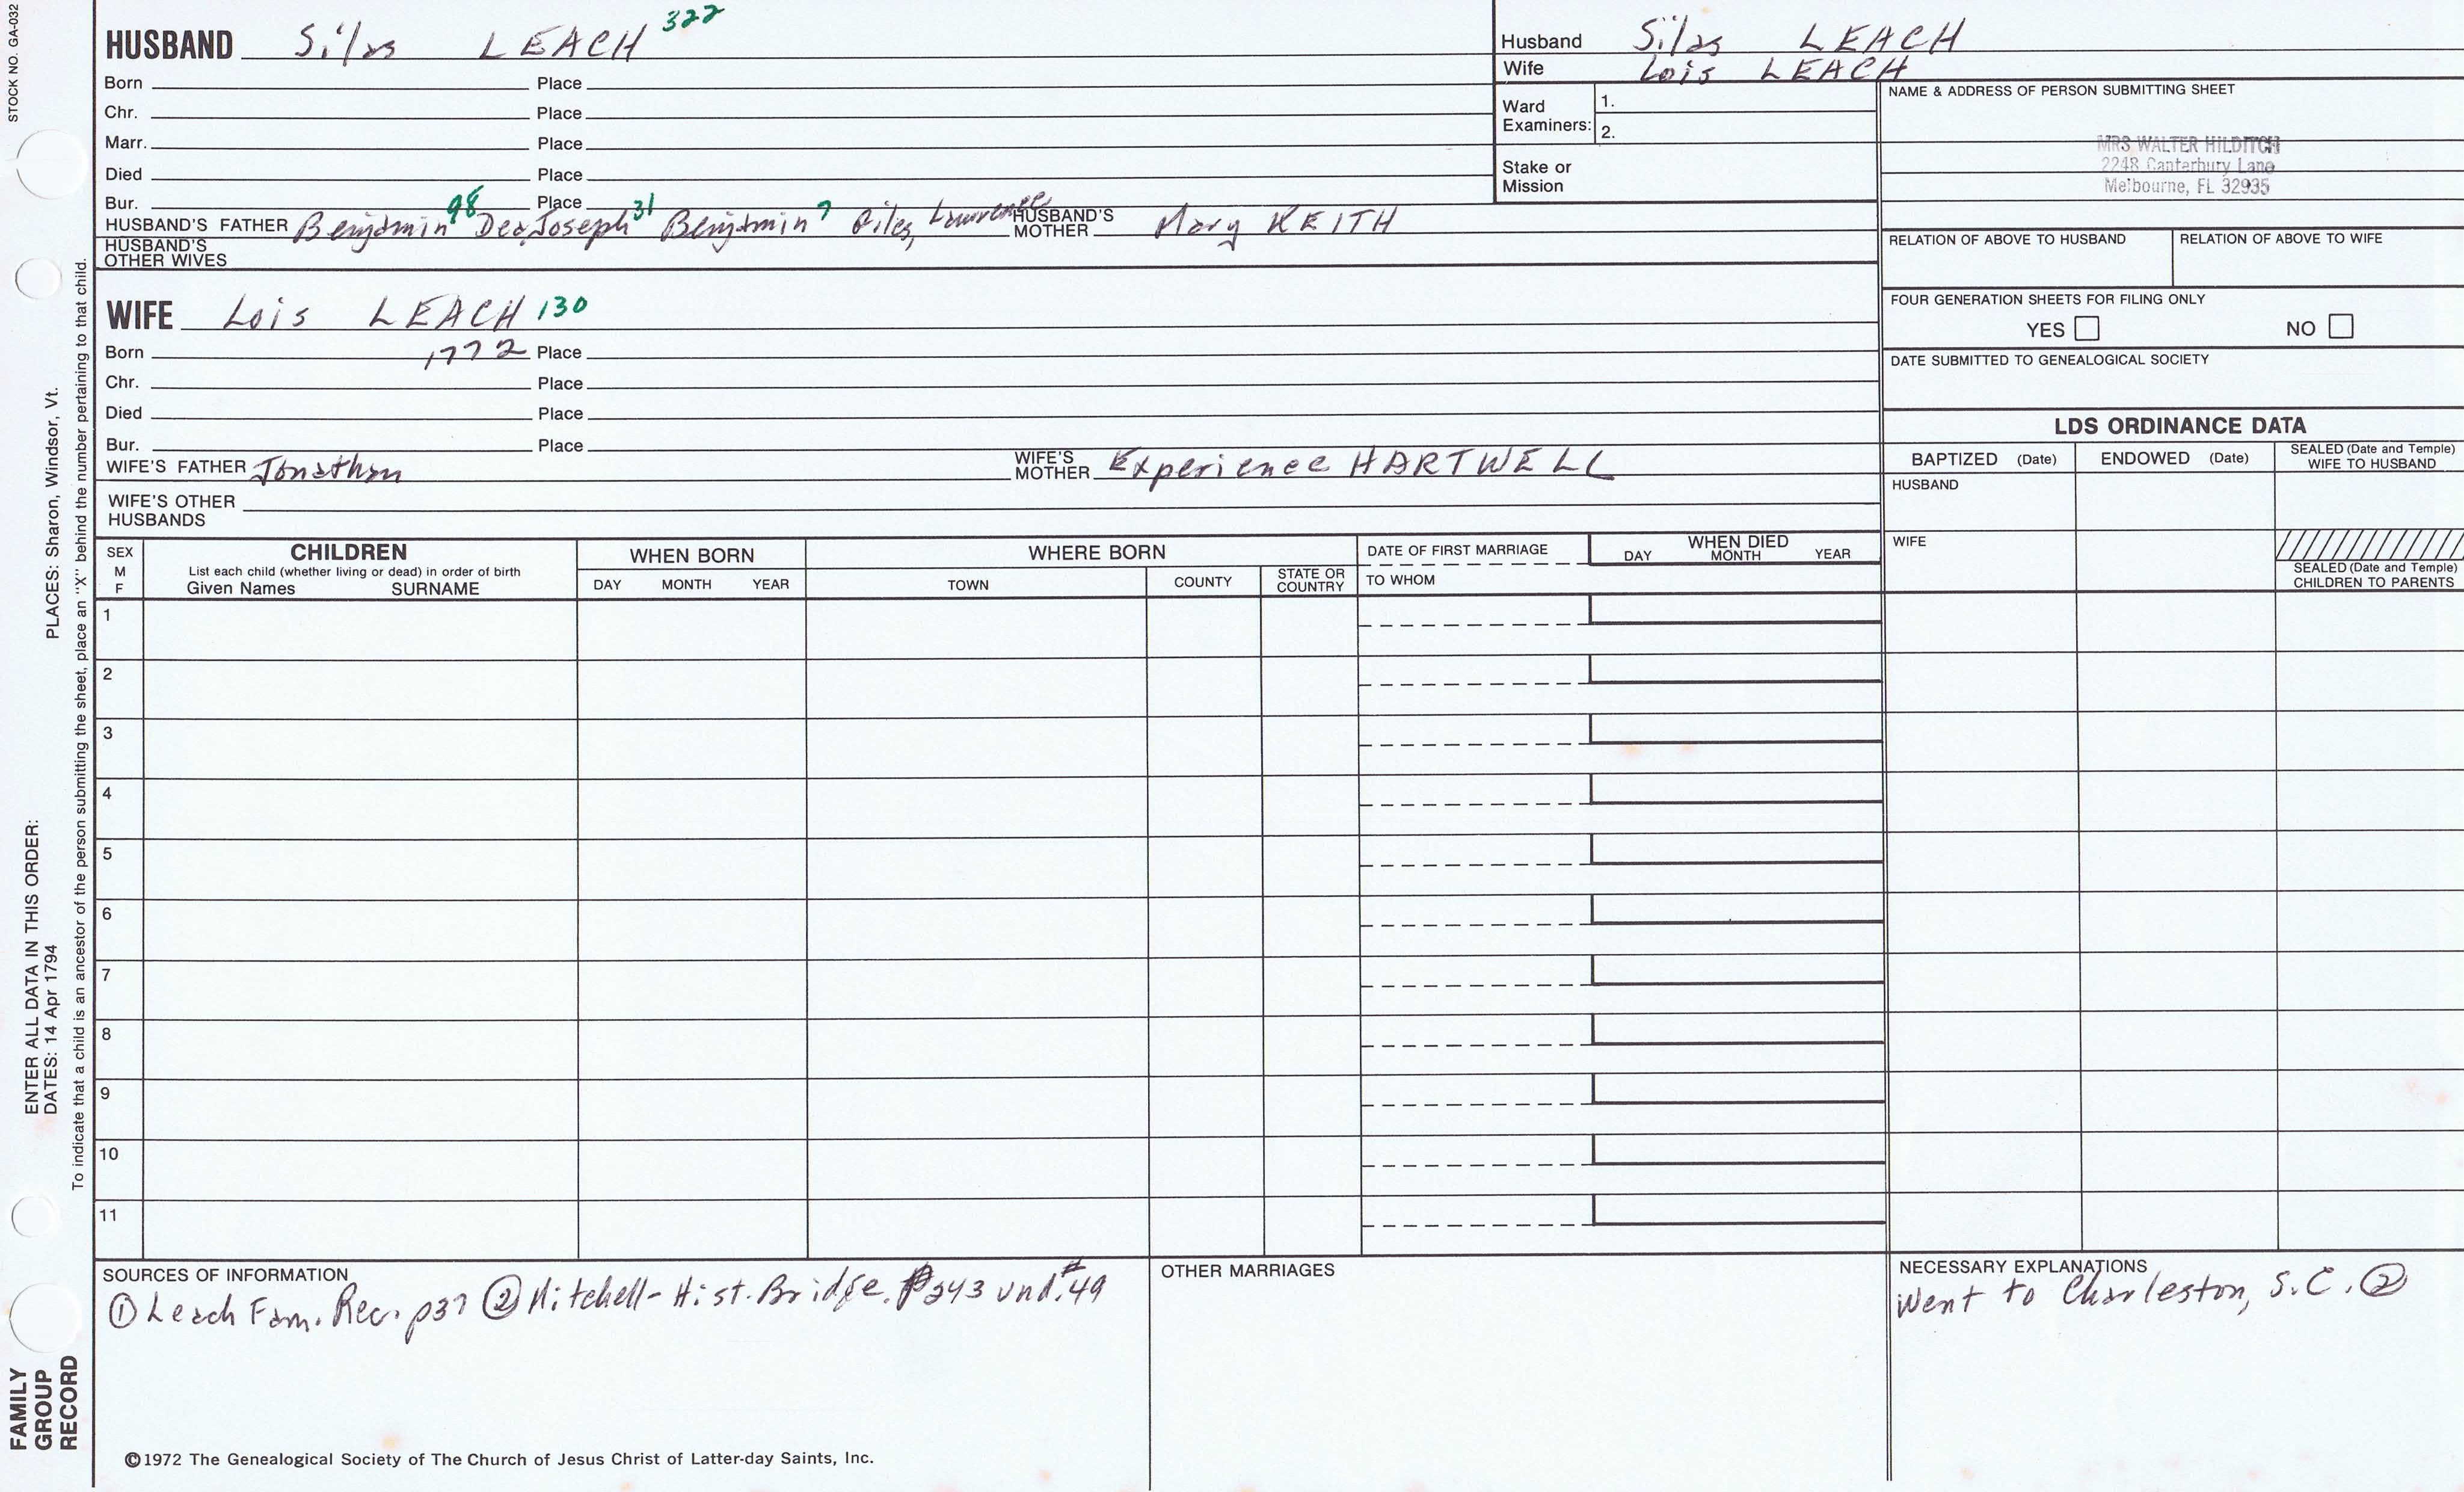 STOCK NO. GA-032
HUSBAND Silas LEACH 322
Born Place
Chr. Place
Marr. Place
Died Place
Bur. Place
HUSBAND'S FATHER Benjamin 98 Dea. Joseph 31 Benjamin 7 Giles, Lawrence HUSBAND'S MOTHER Mary KEITH
HUSBAND'S OTHER WIVES
Husband Silas LEACH
Wife Lois LEACH
Ward Examiners: 1.
2.
Stake or Mission
NAME & ADDRESS OF PERSON SUBMITTING SHEET
MRS WALTER HILDITCH
2248 Canterbury Lane
Melbourne, FL 32935
RELATION OF ABOVE TO HUSBAND RELATION OF ABOVE TO WIFE
FOUR GENERATION SHEETS FOR FILING ONLY
YES NO
DATE SUBMITTED TO GENEALOGICAL SOCIETY
WIFE Lois LEACH 130
Born 1772 Place
Chr. Place
Died Place
Bur. Place
WIFE'S FATHER Jonathan WIFE'S MOTHER Experience HARTWELL
WIFE'S OTHER HUSBANDS
LDS ORDINANCE DATA
BAPTIZED (Date) ENDOWED (Date) SEALED (Date and Temple) WIFE TO HUSBAND
HUSBAND
WIFE
SEALED (Date and Temple) CHILDREN TO PARENTS
SEX M F
CHILDREN
List each child (whether living or dead) in order of birth
Given Names SURNAME
WHEN BORN
DAY MONTH YEAR
WHERE BORN
TOWN COUNTY STATE OR COUNTRY
DATE OF FIRST MARRIAGE
TO WHOM
WHEN DIED
DAY MONTH YEAR
1
2
3
4
5
6
7
8
9
10
11
SOURCES OF INFORMATION
① Leach Fam. Rec. p37 ② Mitchell-Hist. Bridge. p243 und. #49
OTHER MARRIAGES
NECESSARY EXPLANATIONS
Went to Charleston, S.C. ②
©1972 The Genealogical Society of The Church of Jesus Christ of Latter-day Saints, Inc.
FAMILY
GROUP
RECORD
ENTER ALL DATA IN THIS ORDER:
DATES: 14 Apr 1794 PLACES: Sharon, Windsor, Vt.
To indicate that a child is an ancestor of the person submitting the sheet, place an "X" behind the number pertaining to that child.